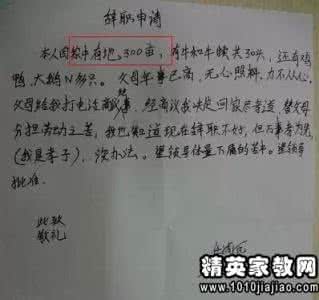 辞职申请
本人因家中有地，300亩，有牛和牛犊共30头，还有鸡
鸭，大鹅N多只。父母年事已高，无心照料，力不从心。
父母给我打电话商议，经商议我决定回家尽孝道，替父母
分担劳动之苦，我也知道现在辞职不好，但百事孝为先
（我是孝子），没办法。望领导体量下属的苦中。望领导
批准。
此致
敬礼
精英家教网
www.1010jiajiao.com